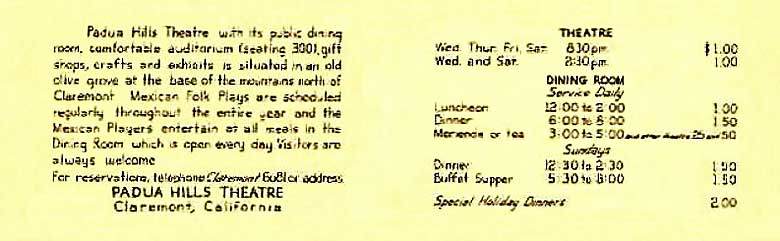 Padua Hills Theatre with its public dining
room, comfortable auditorium (seating 300), gift
shops, crafts and exhibits is situated in an old
olive grove at the base of the mountains north of
Claremont Mexican Folk Plays are scheduled
regularly throughout the entire year and the
Mexican Players entertain at all meals in the
Dining Room which is open every day Visitors are
always welcome
For reservations, telephone Claremont 6081 or address
PADUA HILLS THEATRE
Claremont, California
THEATRE
Wed. Thur. Fri. Sat. 8:30 pm. $1.00
Wed. and Sat. 2:30 pm. 1.00
DINING ROOM
Service Daily
Luncheon 12:00 to 2:00 1.00
Dinner 6:00 to 8:00 1.50
Merienda or tea 3:00 to 5:00 25 and 50
Sundays
Dinner 12:30 to 2:30 1.50
Buffet Supper 5:30 to 8:00 1.50
Special Holiday Dinners 2.00